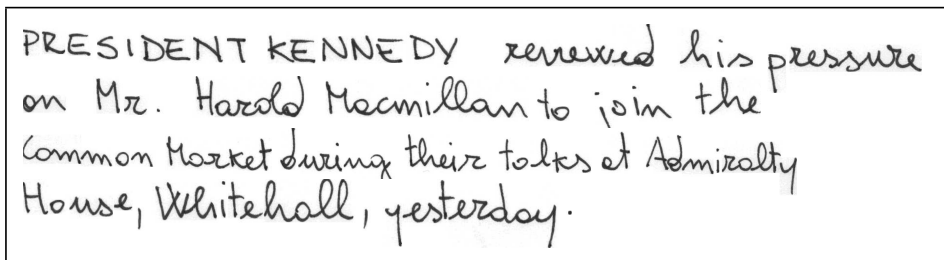 PRESIDENT KENNEDY renewed his pressure
on Mr. Harold Macmillan to join the
Common Market during their talks at Admiralty
House, Whitehall, yesterday.